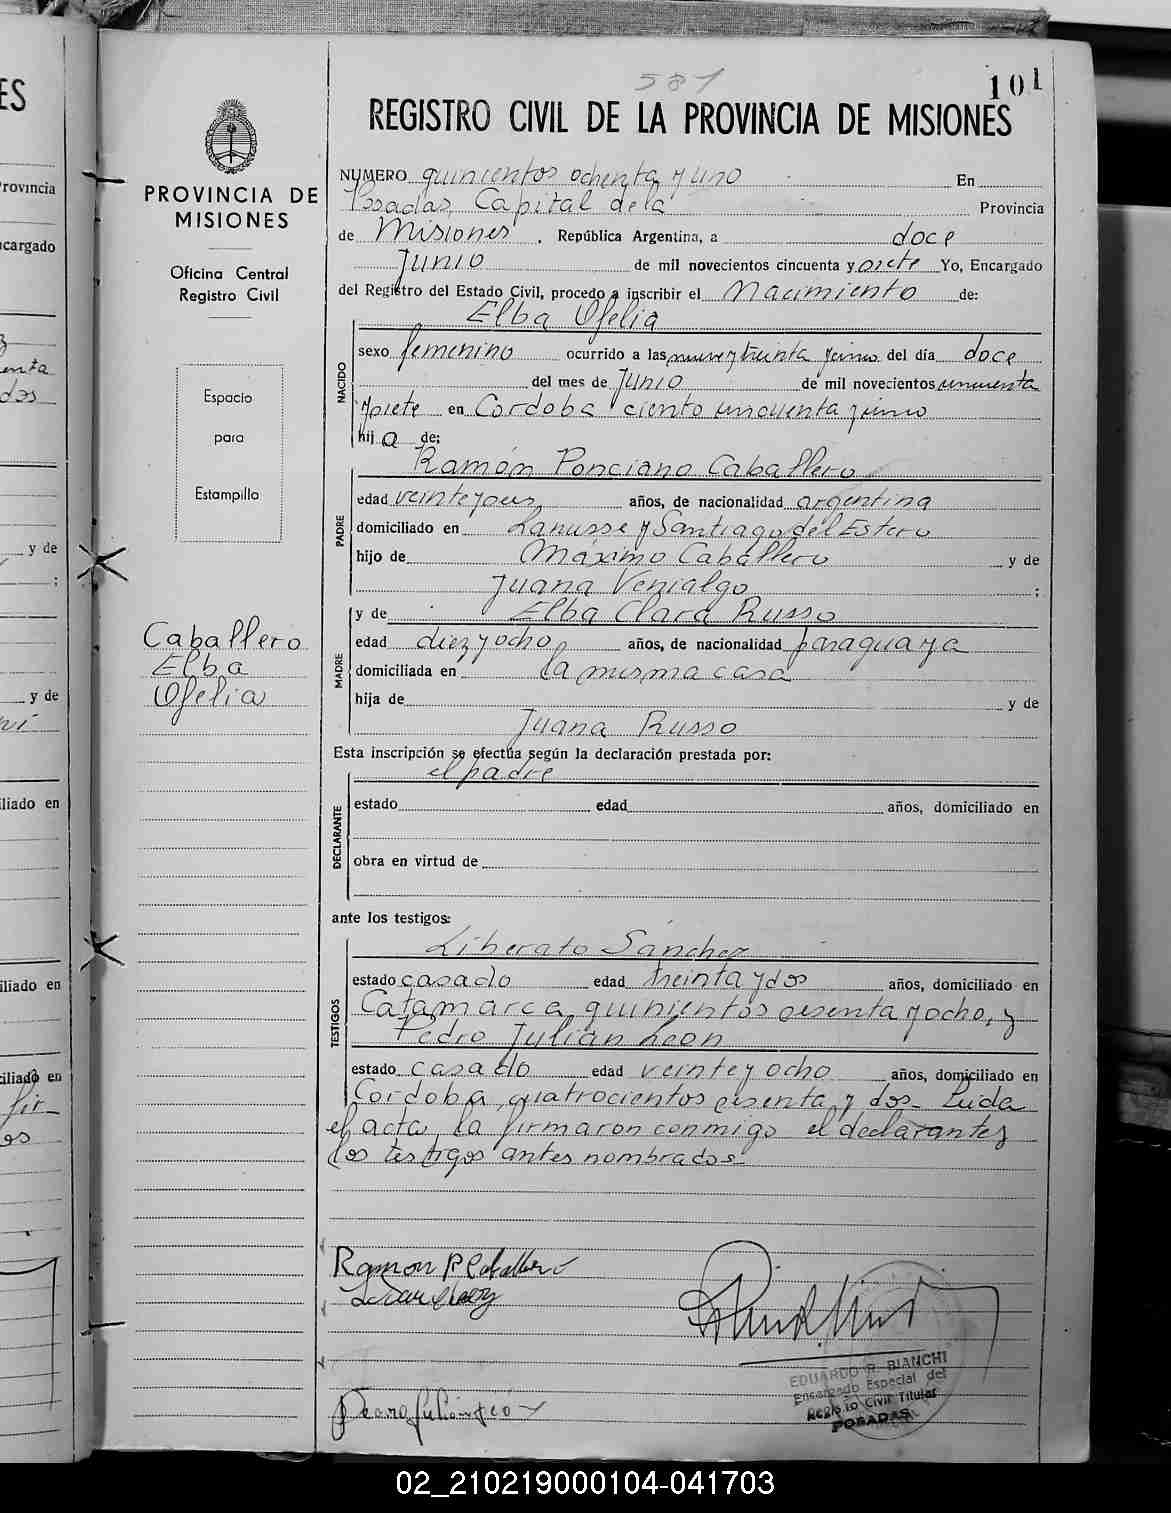 ES
581
101
REGISTRO CIVIL DE LA PROVINCIA DE MISIONES
PROVINCIA DE
MISIONES
Oficina Central
Registro Civil
Espacio
para
Estampilla
Caballero
Elba
Ofelia
NUMERO quinientos ochenta y uno En
Posadas, Capital de la Provincia
de Misiones, República Argentina, a doce
Junio de mil novecientos cincuenta y siete Yo, Encargado
del Registro del Estado Civil, procedo a inscribir el Nacimiento de:
Elba Ofelia
NACIDO
sexo femenino ocurrido a las nueve y treinta y cinco del día doce
del mes de Junio de mil novecientos cincuenta
y siete en Cordoba ciento cincuenta y cinco
hija de:
Ramón Ponciano Caballero
PADRE
edad veinte y seis años, de nacionalidad argentina
domiciliado en Lanusse y Santiago del Estero
hijo de Máximo Caballero y de
Juana Venialgo ;
y de Elba Clara Russo
MADRE
edad diez y ocho años, de nacionalidad paraguaya
domiciliada en la misma casa
hija de y de
Juana Russo
Esta inscripción se efectúa según la declaración prestada por:
el padre
DECLARANTE
estado edad años, domiciliado en
obra en virtud de
ante los testigos:
Liberato Sánchez
TESTIGOS
estado casado edad treinta y dos años, domiciliado en
Catamarca quinientos sesenta y ocho, y
Pedro Julián Leon
estado casado edad veinte y ocho años, domiciliado en
Cordoba, cuatrocientos sesenta y dos- Leida
el acta, la firmaron conmigo el declarante y
los testigos antes nombrados-
Ramon P Caballero
EDUARDO R. BIANCHI
Encargado Especial del
Registro Civil Titular
POSADAS
02_210219000104-041703